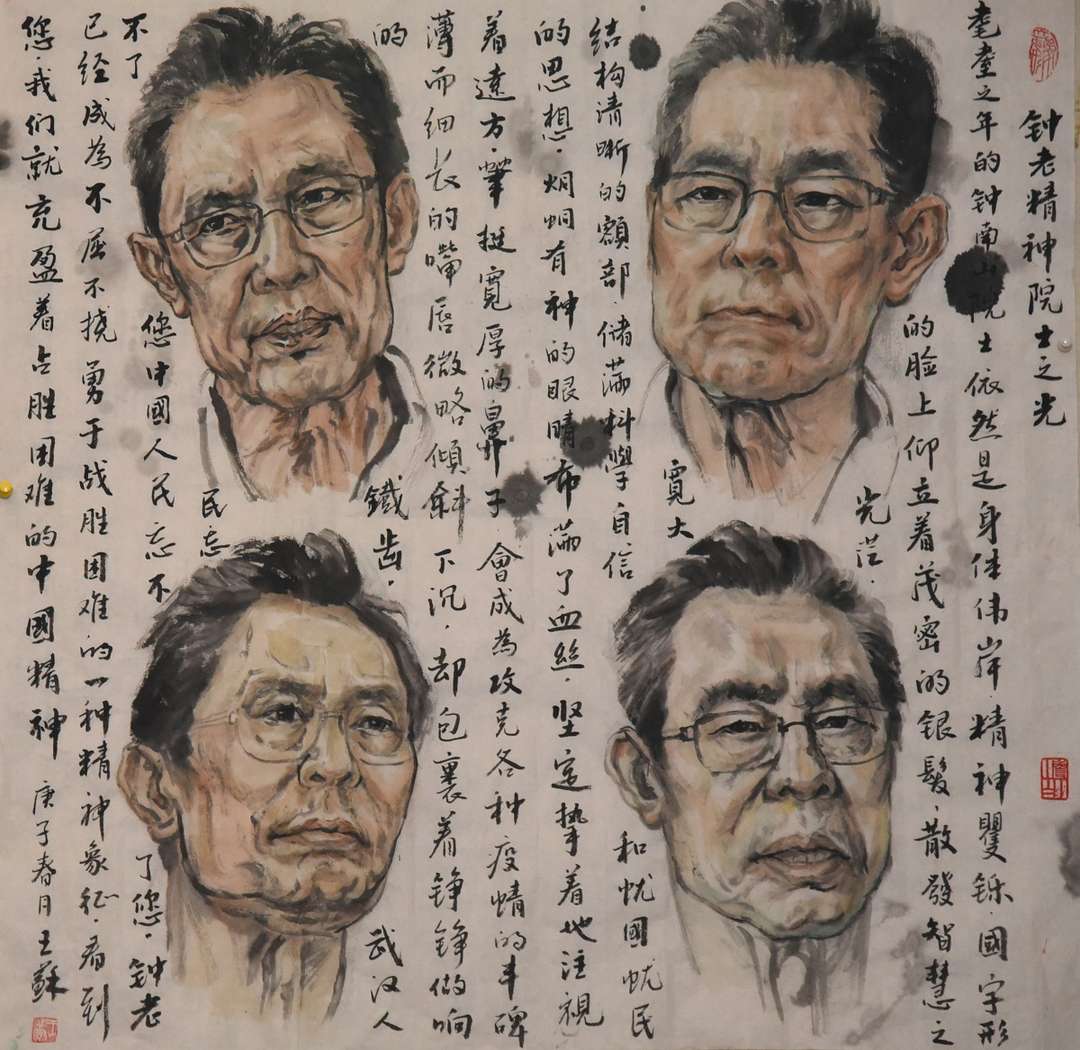 钟老精神院士之光
耄耋之年的钟南山院士依然是身体伟岸.精神矍铄.國字形
的脸上仰立着茂密的银髮.散發智慧之
光茫.
寬大
结构清晰的額部.储满科學自信和忧國忧民
的思想.炯炯有神的眼睛布满了血丝.坚定挚着地注視
着遠方.肇挺寬厚的鼻子會成為攻克各种疫情的丰碑
薄而细长的嘴唇微略傾斜下沉.却包裹着铮铮做响
的鐵齿.武汉人
民忘
不了您中國人民忘不了您.钟老
已经成為不屈不撓勇于战胜困难的一种精神象征看到
您.我们就充盈着占胜困难的中國精神
庚子春月王蘇